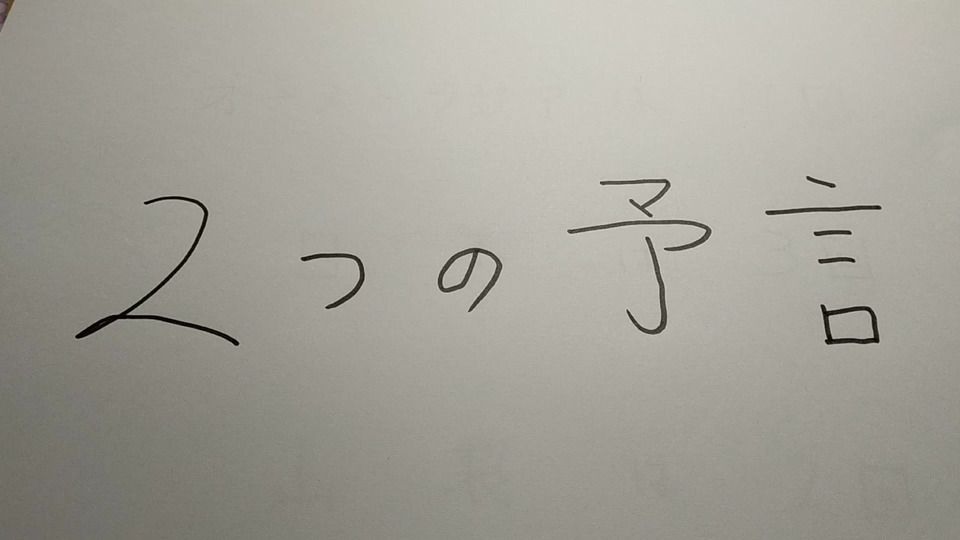 2つの予言